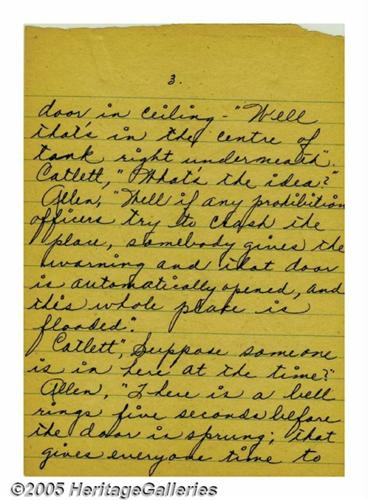 3.
door in ceiling - "Well
that's in the centre of
tank right underneath".
Catlett, "What's the idea?"
Allen, "Well if any prohibition
officers try to crash the
place, somebody gives the
warning and that door
is automatically opened, and
this whole place is
flooded".
Catlett", Suppose someone
is in here at the time?"
Allen, "There is a bell
rings five seconds before
the door is sprung; that
gives everyone time to
©2005 HeritageGalleries